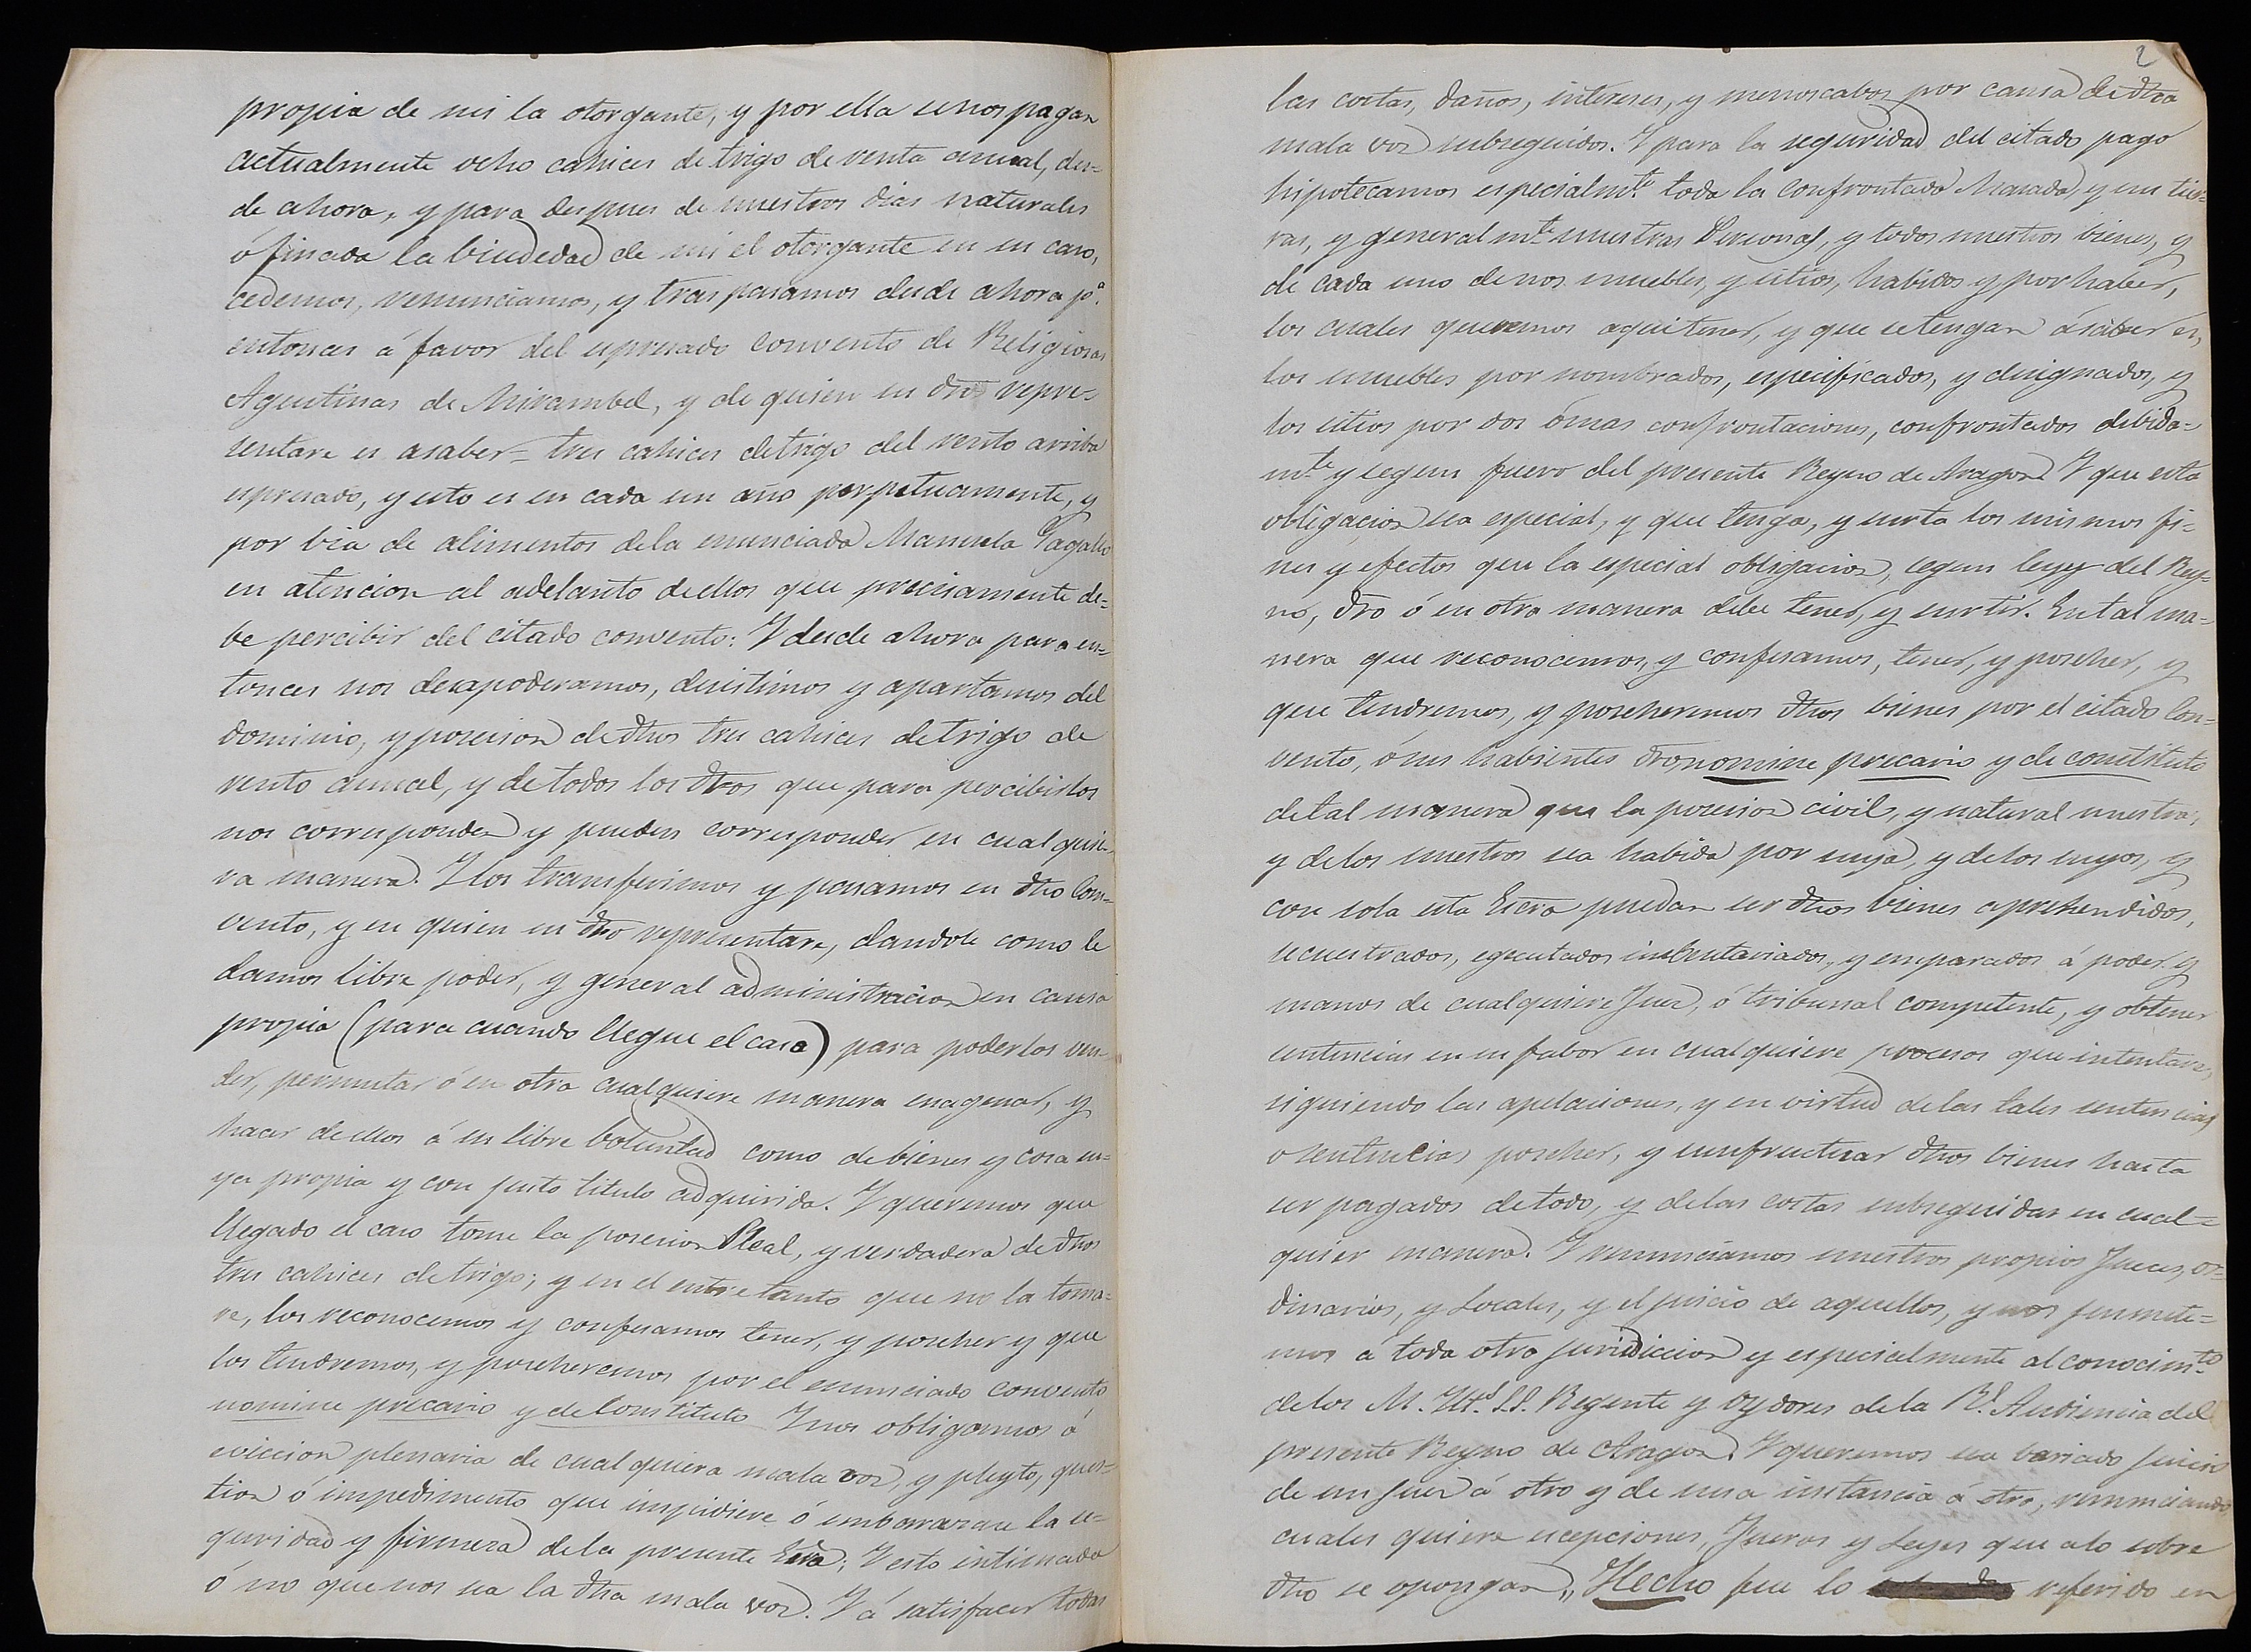 propia de mi la otorgante, y por ella senos pagan
actualmente ocho cahices de trigo de renta anual, des=
de ahora, y para despues de nuestros dias naturales
ó finada la biudedad de mi el otorgante en su caso,
cedemos, renunciamos, y traspasamos desde ahora pª.
entonces á favor del espresado convento de Religiosas
Agustinas de Mirambel, y de quien su dro repre=
sentare es asaber= tres cahices detrigo del rento arriba
espresado, y esto es en cada un año perpetuamente, y
por bia de alimentos dela enunciada Manuela Gagallo
en atencion al adelanto de ellos que precisamente de=
be percibir del citado convento: Y desde ahora para en=
tonces nos desapoderamos, desistimos y apartamos del
dominio, y posesion de dhos tres cahices detrigo de
rento anual, y de todos los dros que para percibirlos
nos corresponden y pueden corresponder en cualquie=
ra manera. Y los transferimos y pasamos en dho Con=
vento, y en quien su dro representare, dandole como le
damos libre poder, y general administracion en causa
propia (para cuando llegue el caso) para poderlos ven=
der, permutar ó en otra cualquiere manera enagenar, y
hacer de ellos á su libre boluntad como de bienes y cosa su=
ya propia y con justo titulo adquirida. Y queremos que
llegado el caso tome la posesion Real, y verdadera de dhos
tres cahices de trigo; y en el entretanto que no la toma=
re, los reconocemos y confesamos tener, y poseher y que
los tendremos, y poseheremos por el enunciado convento
nomine precario y de Constituto Y nos obligamos á
eviccion plenaria de cualquiera mala voz, y pleyto, ques=
tion ó impedimento que impidiere ó embarazare la se=
guridad y firmeza dela presente Escra; Y esto intimado
ó no que nos sea la dha mala voz. Y á satisfacer todas
2
las costas, daños, intereses, y menoscabos por causa de dha
mala voz subseguidos. Y para la seguridad del citado pago
hipotecamos especialmte. toda la confrontada Masada, y sus tier=
ras, y generalmte. nuestras Personas, y todos nuestros bienes, y
de cada uno de nos muebles, y sitios, habidos y por haber,
los cuales queremos aqui tener, y que se tengan á saber es,
los muebles por nombrados, especificados, y designados, y
los sitios por dos ó mas confrontaciones, confrontados debida=
mte. y segun fuero del presente Reyno de Aragon. Y que esta
obligacion sea especial, y que tenga, y surta los mismos fi=
nes y efectos que la especial obligacion, segun leyes del Rey=
no, dro ó en otra manera debe tener, y surtir. En tal ma=
nera que reconocemos, y confesamos, tener, y poseher, y
que tendremos, y poseheremos dhos bienes por el citado Con=
vento, ó sus habientes dro, nomine precario y de constituto
detal manera que la posesion civil, y natural nuestra,
y delos nuestros sea habida por suya, y delos suyos, y
con sola esta Escra puedan ser dhos bienes aprehendidos,
secuestrados, egecutados imbentariados, y emparados á poder y
manos de cualquiere Juez, ó tribunal competente, y obtener
sentencias en su fabor en cualquiere procesos que intentare,
siguiendo las apelaciones, y en virtud delas tales sentencias,
o sentencias posseher, y usufructuar dhos bienes hasta
ser pagados detodo, y delas costas subseguidas en cual=
quier manera. Y renunciamos nuestros propios Jueces, or=
dinarios, y Locales, y el juicio de aquellos, y nos jusmete=
mos á toda otra juridiccion y especialmente al conocimto.
delos M. Ills. S.S. Regente y Oydores dela Rl. Audiencia del
presente Reyno de Aragon. Y queremos sea bariado juicio
de un juez á otro y de una instancia á otra, renunciando
cuales quiere escepciones, Fueros y Leyes que alo sobre
dho se opongan,, Hecho fue lo referido en